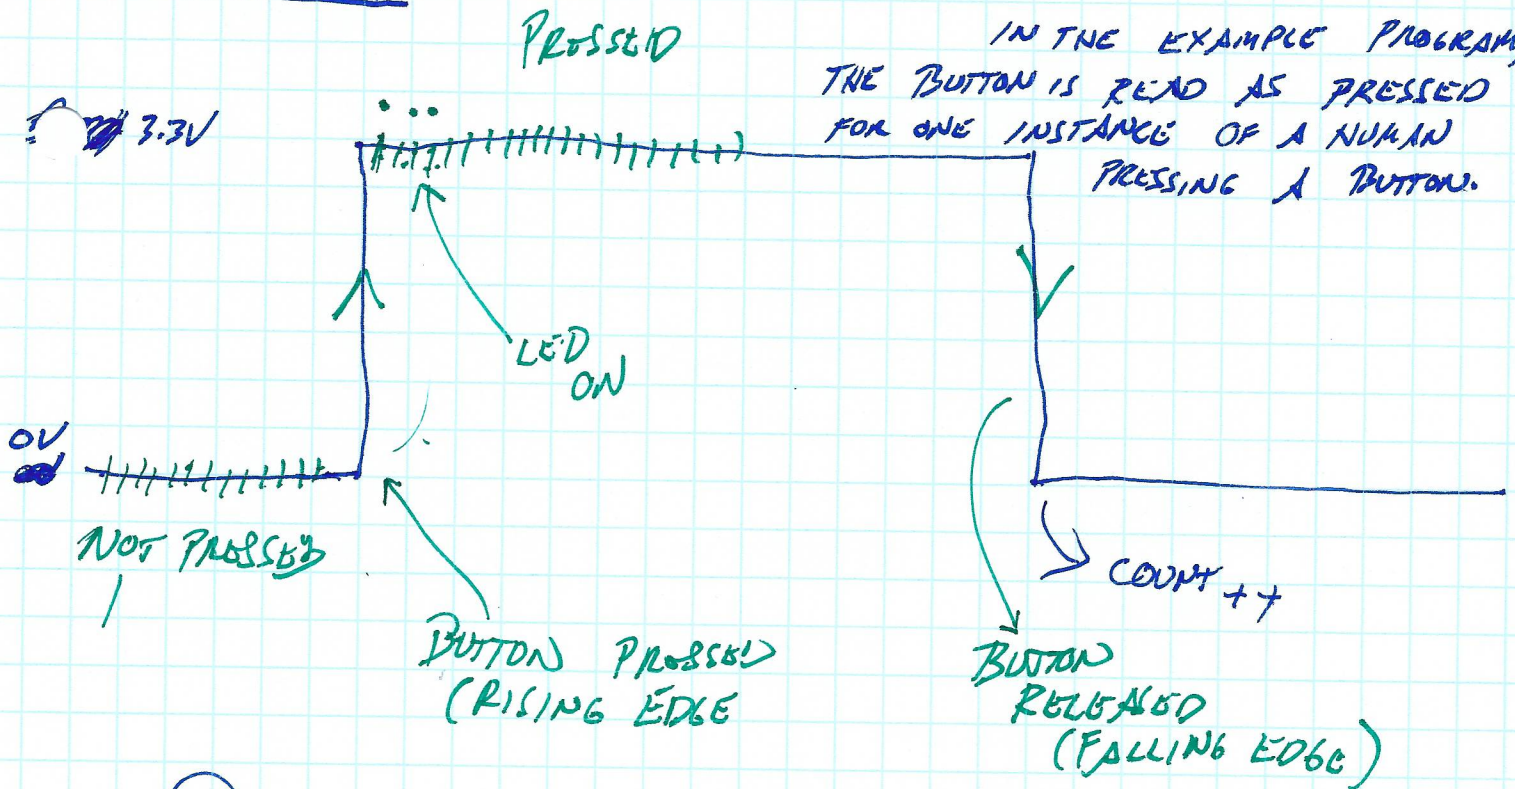 PRESSED
IN THE EXAMPLE PROGRAM,
THE BUTTON IS READ AS PRESSED
FOR ONE INSTANCE OF A HUMAN
PRESSING A BUTTON.
3.3V
LED
ON
0V
NOT PRESSED
COUNT++
BUTTON PRESSED
(RISING EDGE
BUTTON
RELEASED
(FALLING EDGE)